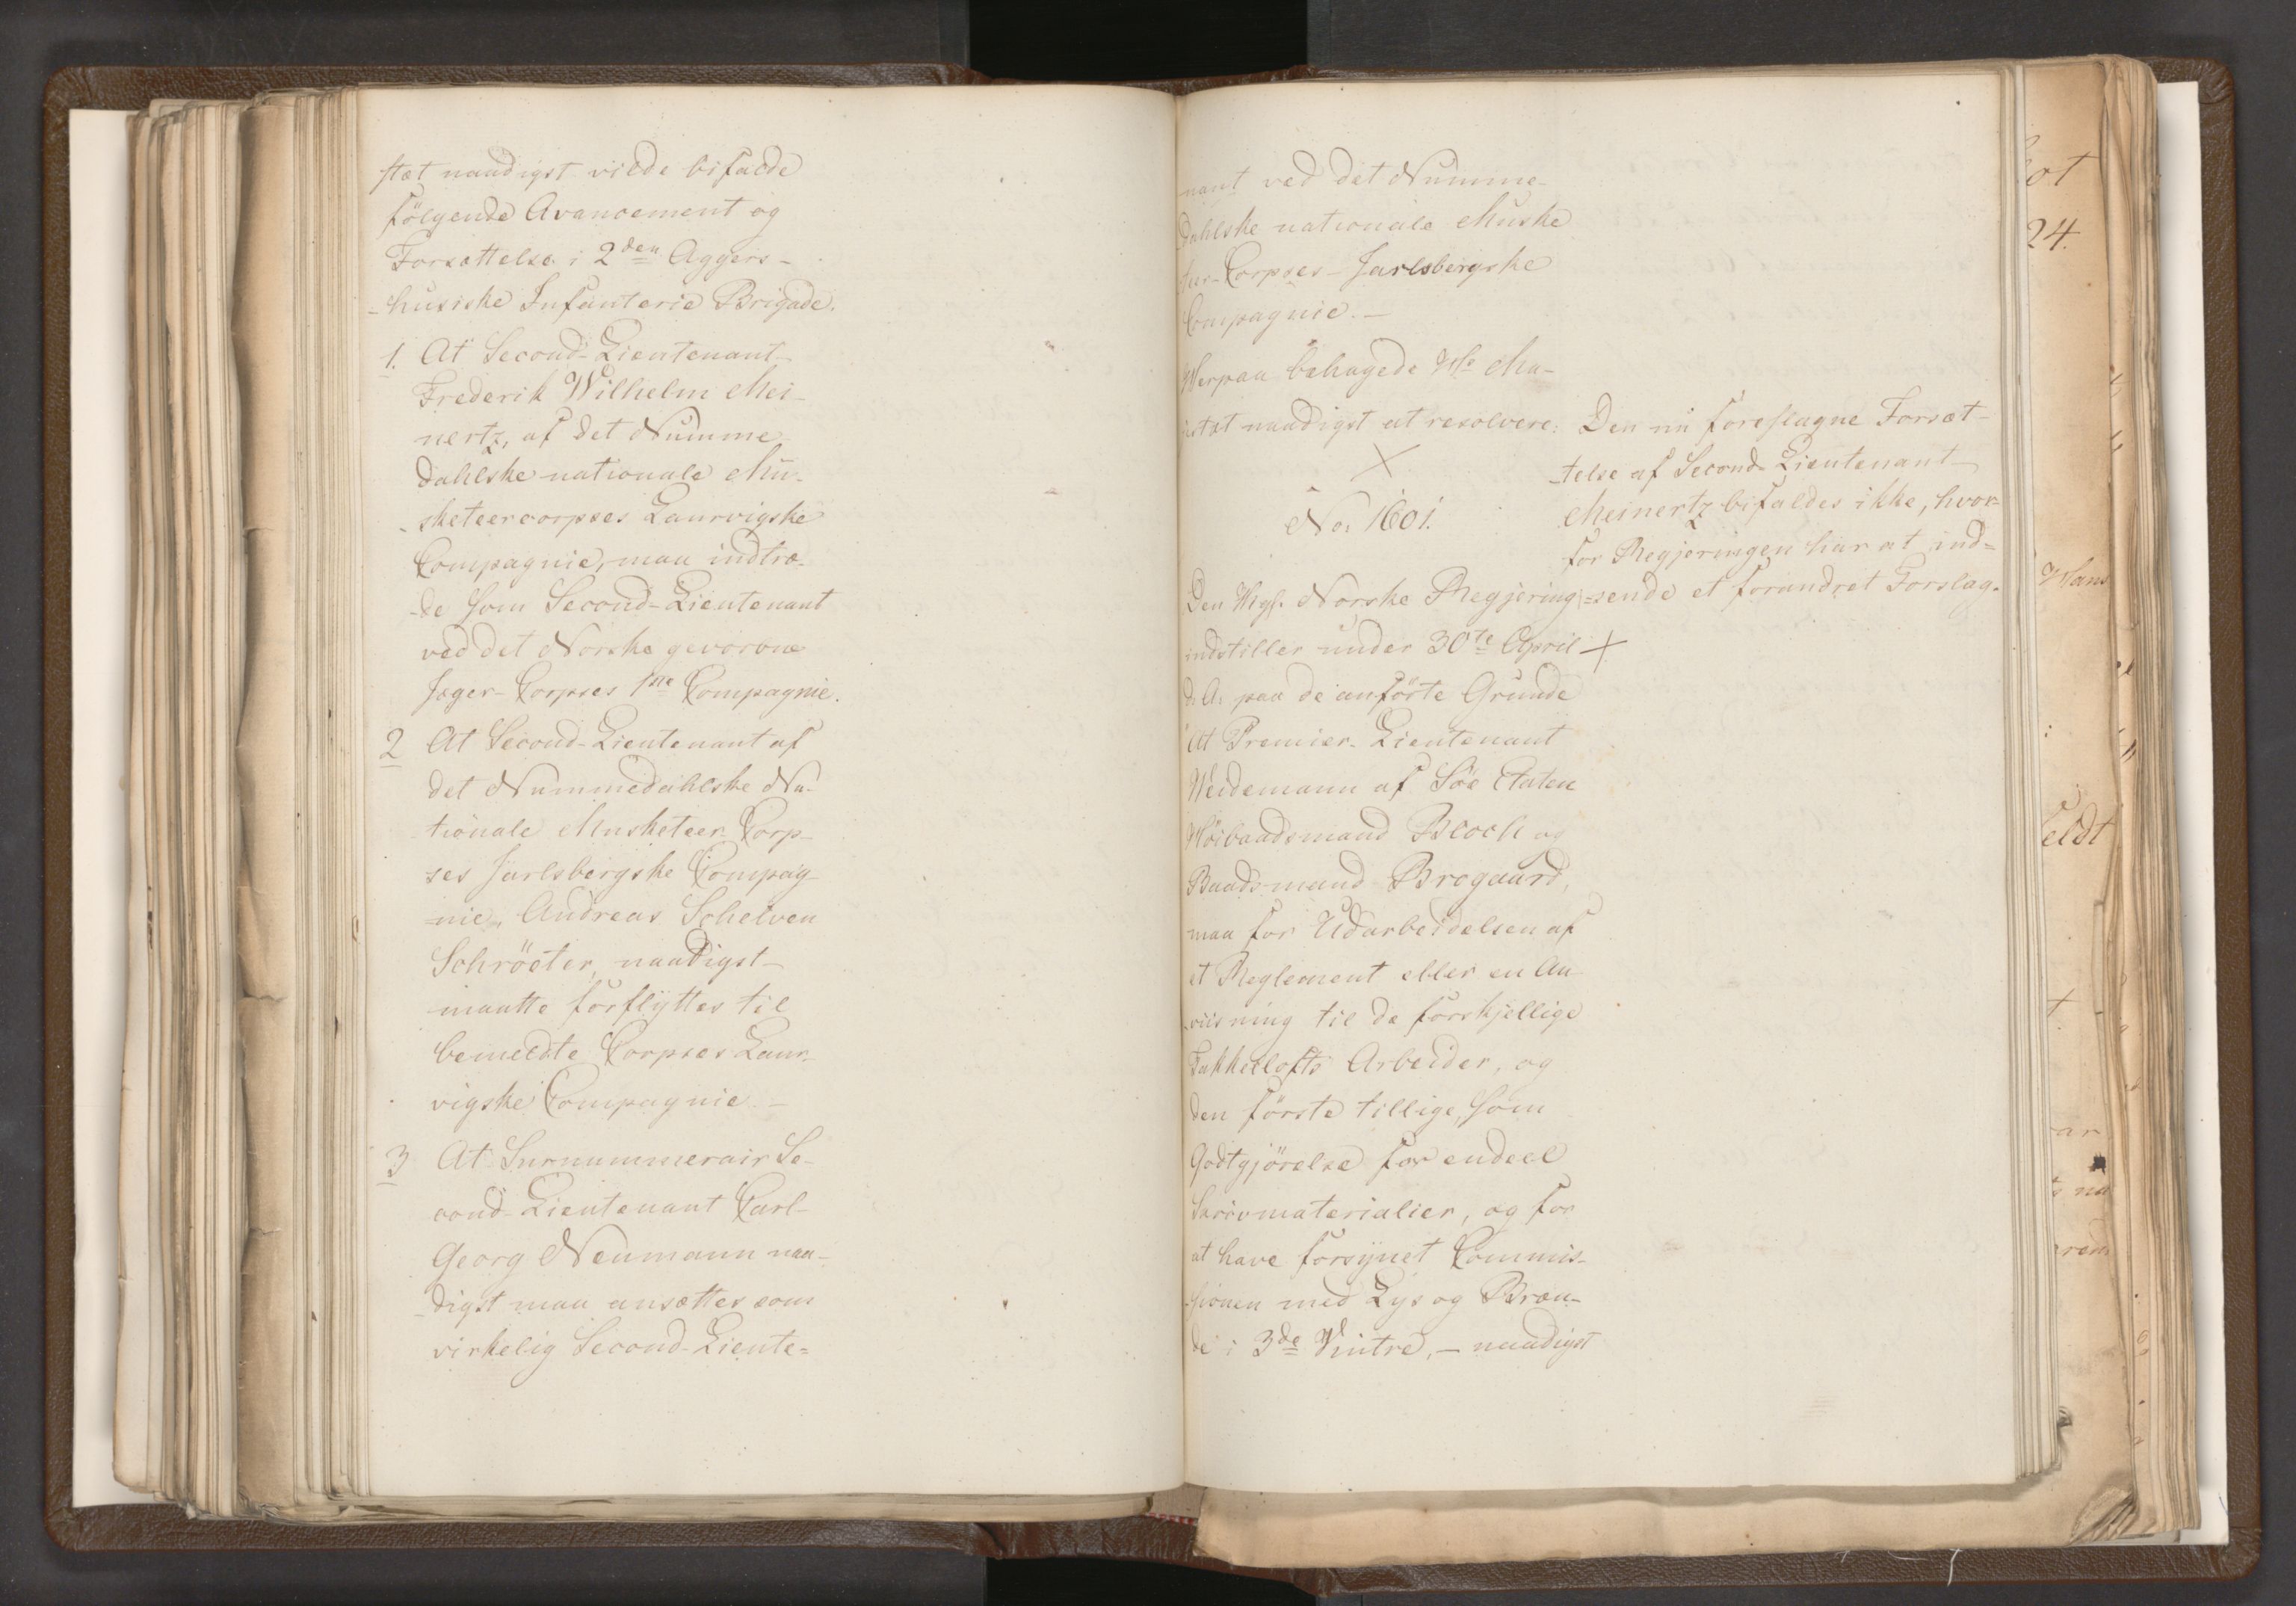 stæt naadigst vilde bifalde
følgende Avancement og
Forsættelse i 2den Aggers-
-husiske Infanterie Brigade.
1. At Second-Lieutenant
Frederik Wilhelm Mei-
nertz, af det Numme
dahlske nationale Mu-
-sketeercorpses Laurvigske
Compagnie, maa indtræ-
-de som Second-Lieutenant
ved det Norske gevorvne
Jæger-Corpses 1ne Compagnie.
2 At Second-Lieutenant af
det Nummedahlske Na-
tionale Musketeer Corp-
ses Jarlsbergske Compag
=nie, Andreas Schelven
Schröeter, naadigst
maatte forflyttes til
bemeldte Corpses Laur-
vigske Compagnie. -
3 At Surnummerair Se-
cond-Lieutenant Carl
Georg Neumann naa-
-digst maa ansættes som
virkelig Second-Lieute=
nant ved det Numme-
dahlske nationale Muske
teer-Corpses Jarlsbergske
Compagnie. -
Herpaa behagede Hs Ma-
jestæt naadigst at resolvere:
Den nu foreslagne Forsæt-
-telse af Second-Lieutenant
Meinertz bifaldes ikke, hvor-
for Regjeringen har at ind=
=sende et forandret Forslag.
+
No. 1601.
Den Kgl. Norske Regjering
indstiller under 30te April +
d: A: paa de anförte Grunde
At Premier-Lieutenant
Weidemann af Söe Etaten
Höibaadsmand Bloch og
Baadsmand Brogaard,
maa for Udarbeidelsen af
et Reglement eller en An
-viisning til de forskjellige
Takkelofts Arbeider, og
den förste tillige, som
Godtgjörelse for endeel
Skrivmaterialier, og for
at have forsynet Commis-
-sionen med Lys og Bræn-
de i 3de Vintre, - naadigst
ot
24.
Hans
feldt
t
ar
na